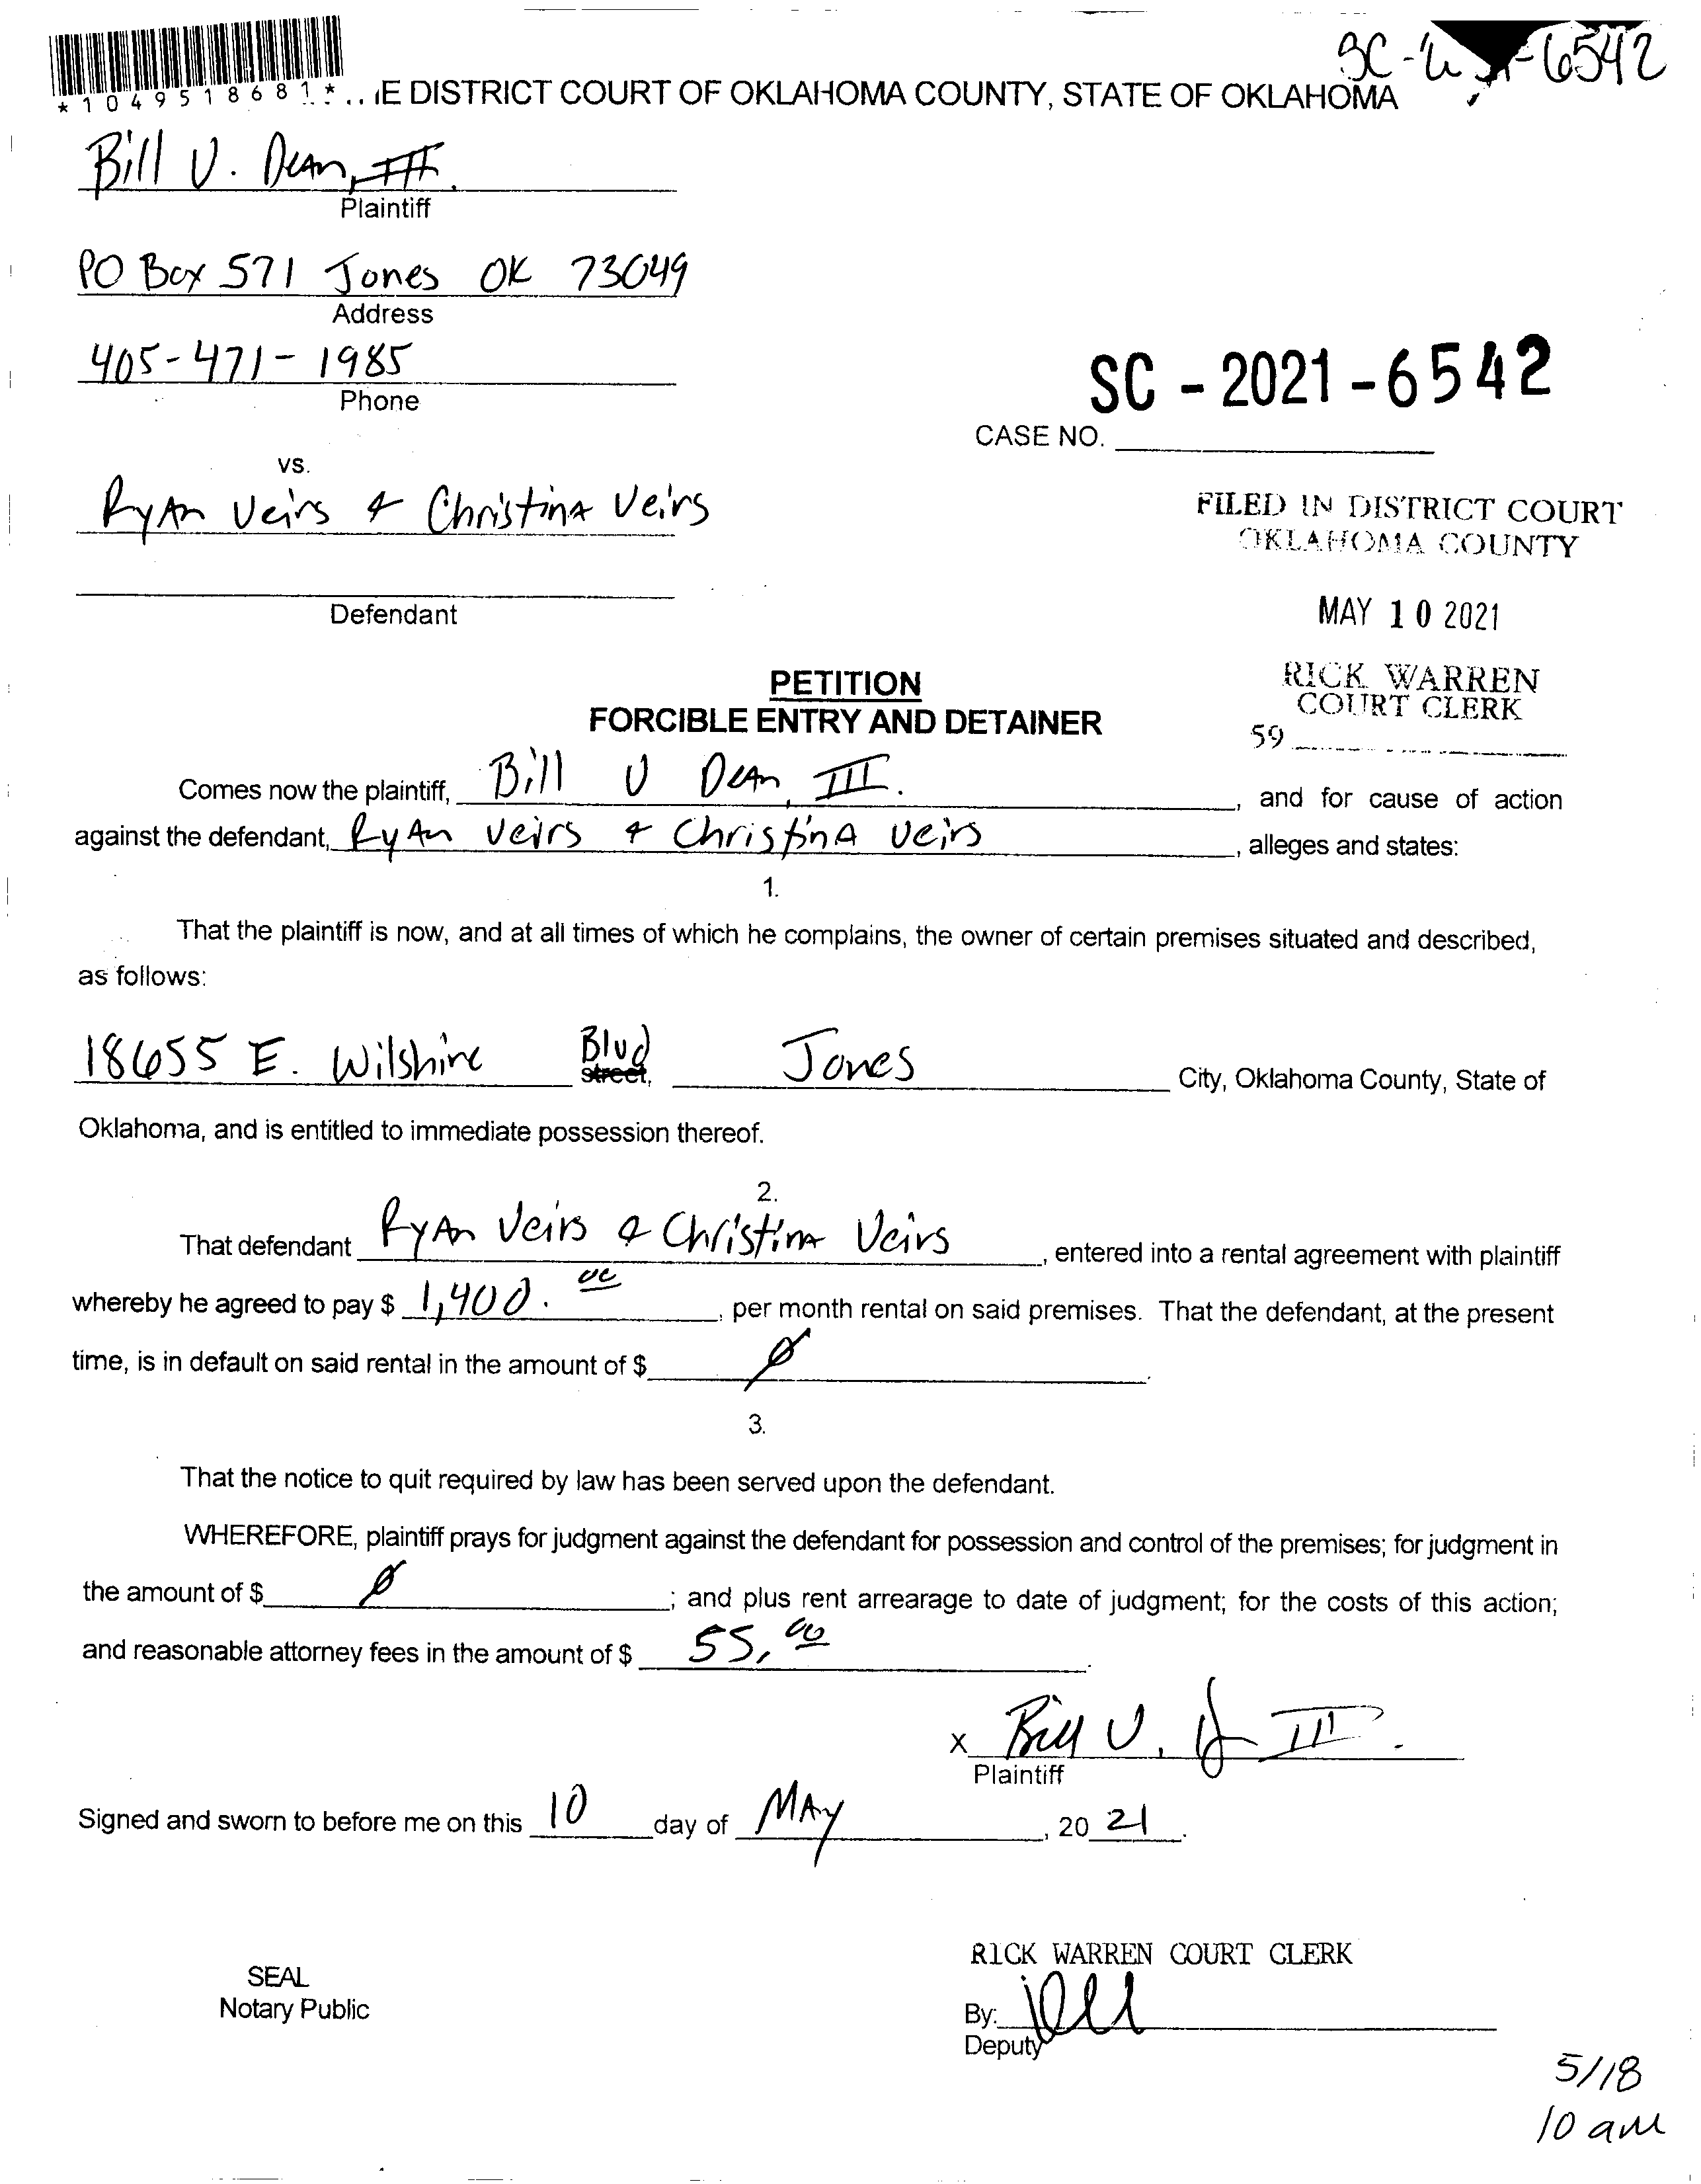 SC-2021-6542
*1049518681*
E DISTRICT COURT OF OKLAHOMA COUNTY, STATE OF OKLAHOMA
Bill V. Dean, III.
Plaintiff
PO Box 571 Jones OK 73049
Address
405-471-1985
Phone
SC - 2021 - 6542
CASE NO.
vs.
Ryan Veirs & Christina Veirs
FILED IN DISTRICT COURT
OKLAHOMA COUNTY
Defendant
MAY 10 2021
PETITION
FORCIBLE ENTRY AND DETAINER
RICK WARREN
COURT CLERK
59
Comes now the plaintiff, Bill V Dean, III., and for cause of action
against the defendant, Ryan Veirs & Christina Veirs, alleges and states:
1.
That the plaintiff is now, and at all times of which he complains, the owner of certain premises situated and described,
as follows:
18655 E. Wilshire Blvd street, Jones City, Oklahoma County, State of
Oklahoma, and is entitled to immediate possession thereof.
2.
That defendant Ryan Veirs & Christina Veirs, entered into a rental agreement with plaintiff
whereby he agreed to pay $ 1,400.00, per month rental on said premises. That the defendant, at the present
time, is in default on said rental in the amount of $ Ø.
3.
That the notice to quit required by law has been served upon the defendant.
WHEREFORE, plaintiff prays for judgment against the defendant for possession and control of the premises; for judgment in
the amount of $ Ø; and plus rent arrearage to date of judgment; for the costs of this action;
and reasonable attorney fees in the amount of $ 55.00.
x Bill V. D III.
Plaintiff
Signed and sworn to before me on this 10 day of May, 20 21.
RICK WARREN COURT CLERK
SEAL
Notary Public
By:
Deputy
5/18
10 am